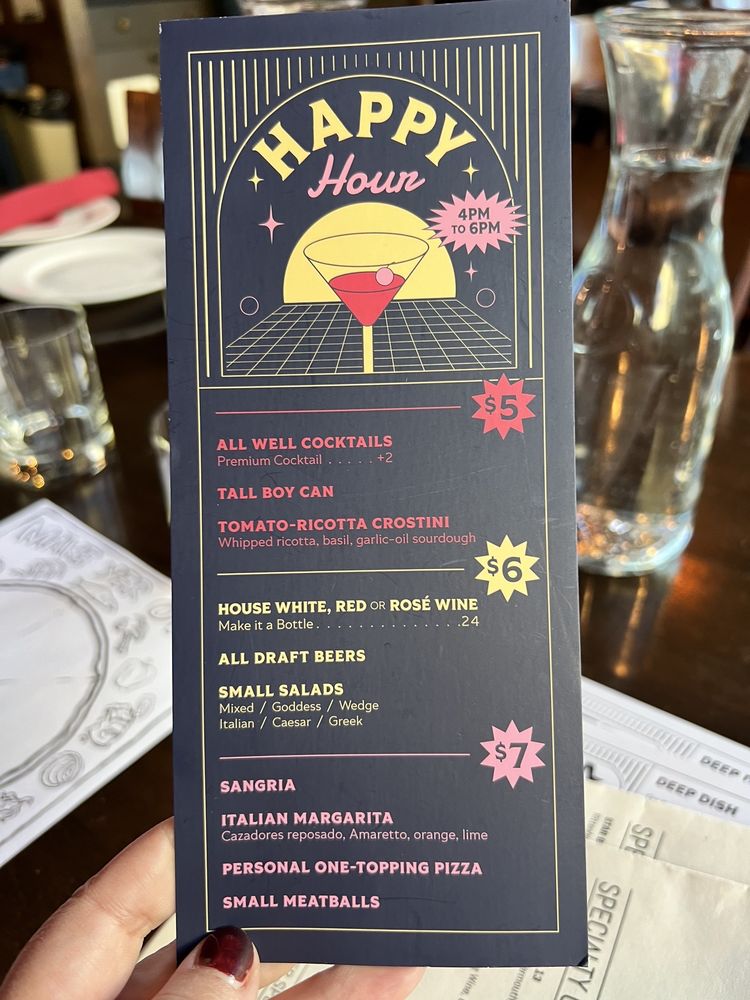 HAPPY
Hour
4PM
TO 6PM
$5
ALL WELL COCKTAILS
Premium Cocktail . . . . . +2
TALL BOY CAN
TOMATO-RICOTTA CROSTINI
Whipped ricotta, basil, garlic-oil sourdough
$6
HOUSE WHITE, RED OR ROSÉ WINE
Make it a Bottle . . . . . . . . . . . . . . .24
ALL DRAFT BEERS
SMALL SALADS
Mixed / Goddess / Wedge
Italian / Caesar / Greek
$7
SANGRIA
ITALIAN MARGARITA
Cazadores reposado, Amaretto, orange, lime
PERSONAL ONE-TOPPING PIZZA
SMALL MEATBALLS
DEEP
DEEP DISH
SPECIALTY